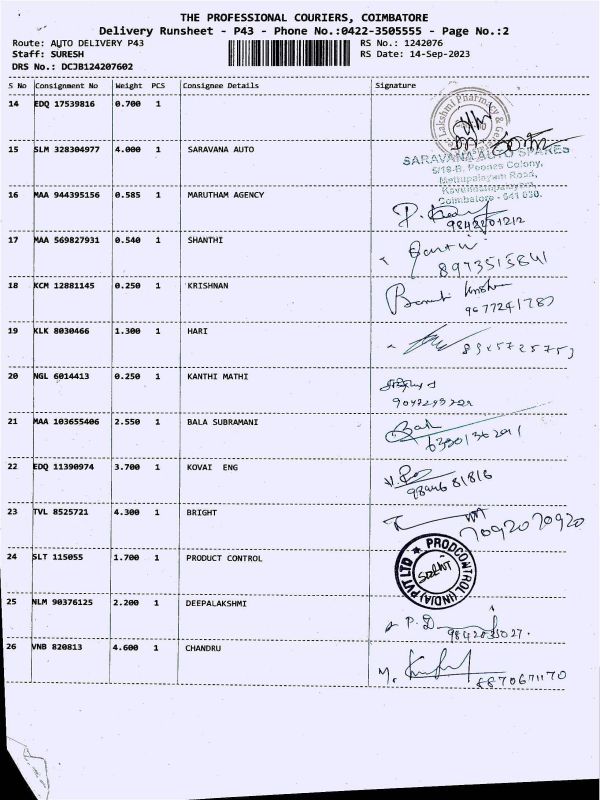 THE PROFESSIONAL COURIERS, COIMBATORE
Delivery Runsheet - P43 - Phone No.:0422-3505555 - Page No.:2
Route: AUTO DELIVERY P43 RS No.: 1242076
Staff: SURESH RS Date: 14-Sep-2023
DRS No.: DCJB124207602
S No Consignment No Weight PCS Consignee Details Signature
14 EDQ 17539816 0.700 1
Lakshmi Pharmacy &
15 SLM 328304977 4.000 1 SARAVANA AUTO
SARAVANA AUTO SPARES
5/18-B, Peones Colony,
Mettupalayam Road,
Coimbatore - 641 030.
16 MAA 944395156 0.585 1 MARUTHAM AGENCY
9842201212
17 MAA 569827931 0.540 1 SHANTHI
8973515841
18 KCM 12881145 0.250 1 KRISHNAN
9677241787
19 KLK 8030466 1.300 1 HARI
20 NGL 6014413 0.250 1 KANTHI MATHI
21 MAA 103655406 2.550 1 BALA SUBRAMANI
22 EDQ 11390974 3.700 1 KOVAI ENG
23 TVL 8525721 4.300 1 BRIGHT
7092070920
24 SLT 115055 1.700 1 PRODUCT CONTROL
PRODCONTROL (INDIA) PVT LTD
25 NLM 90376125 2.200 1 DEEPALAKSHMI
P.D
26 VNB 820813 4.600 1 CHANDRU
8870671170